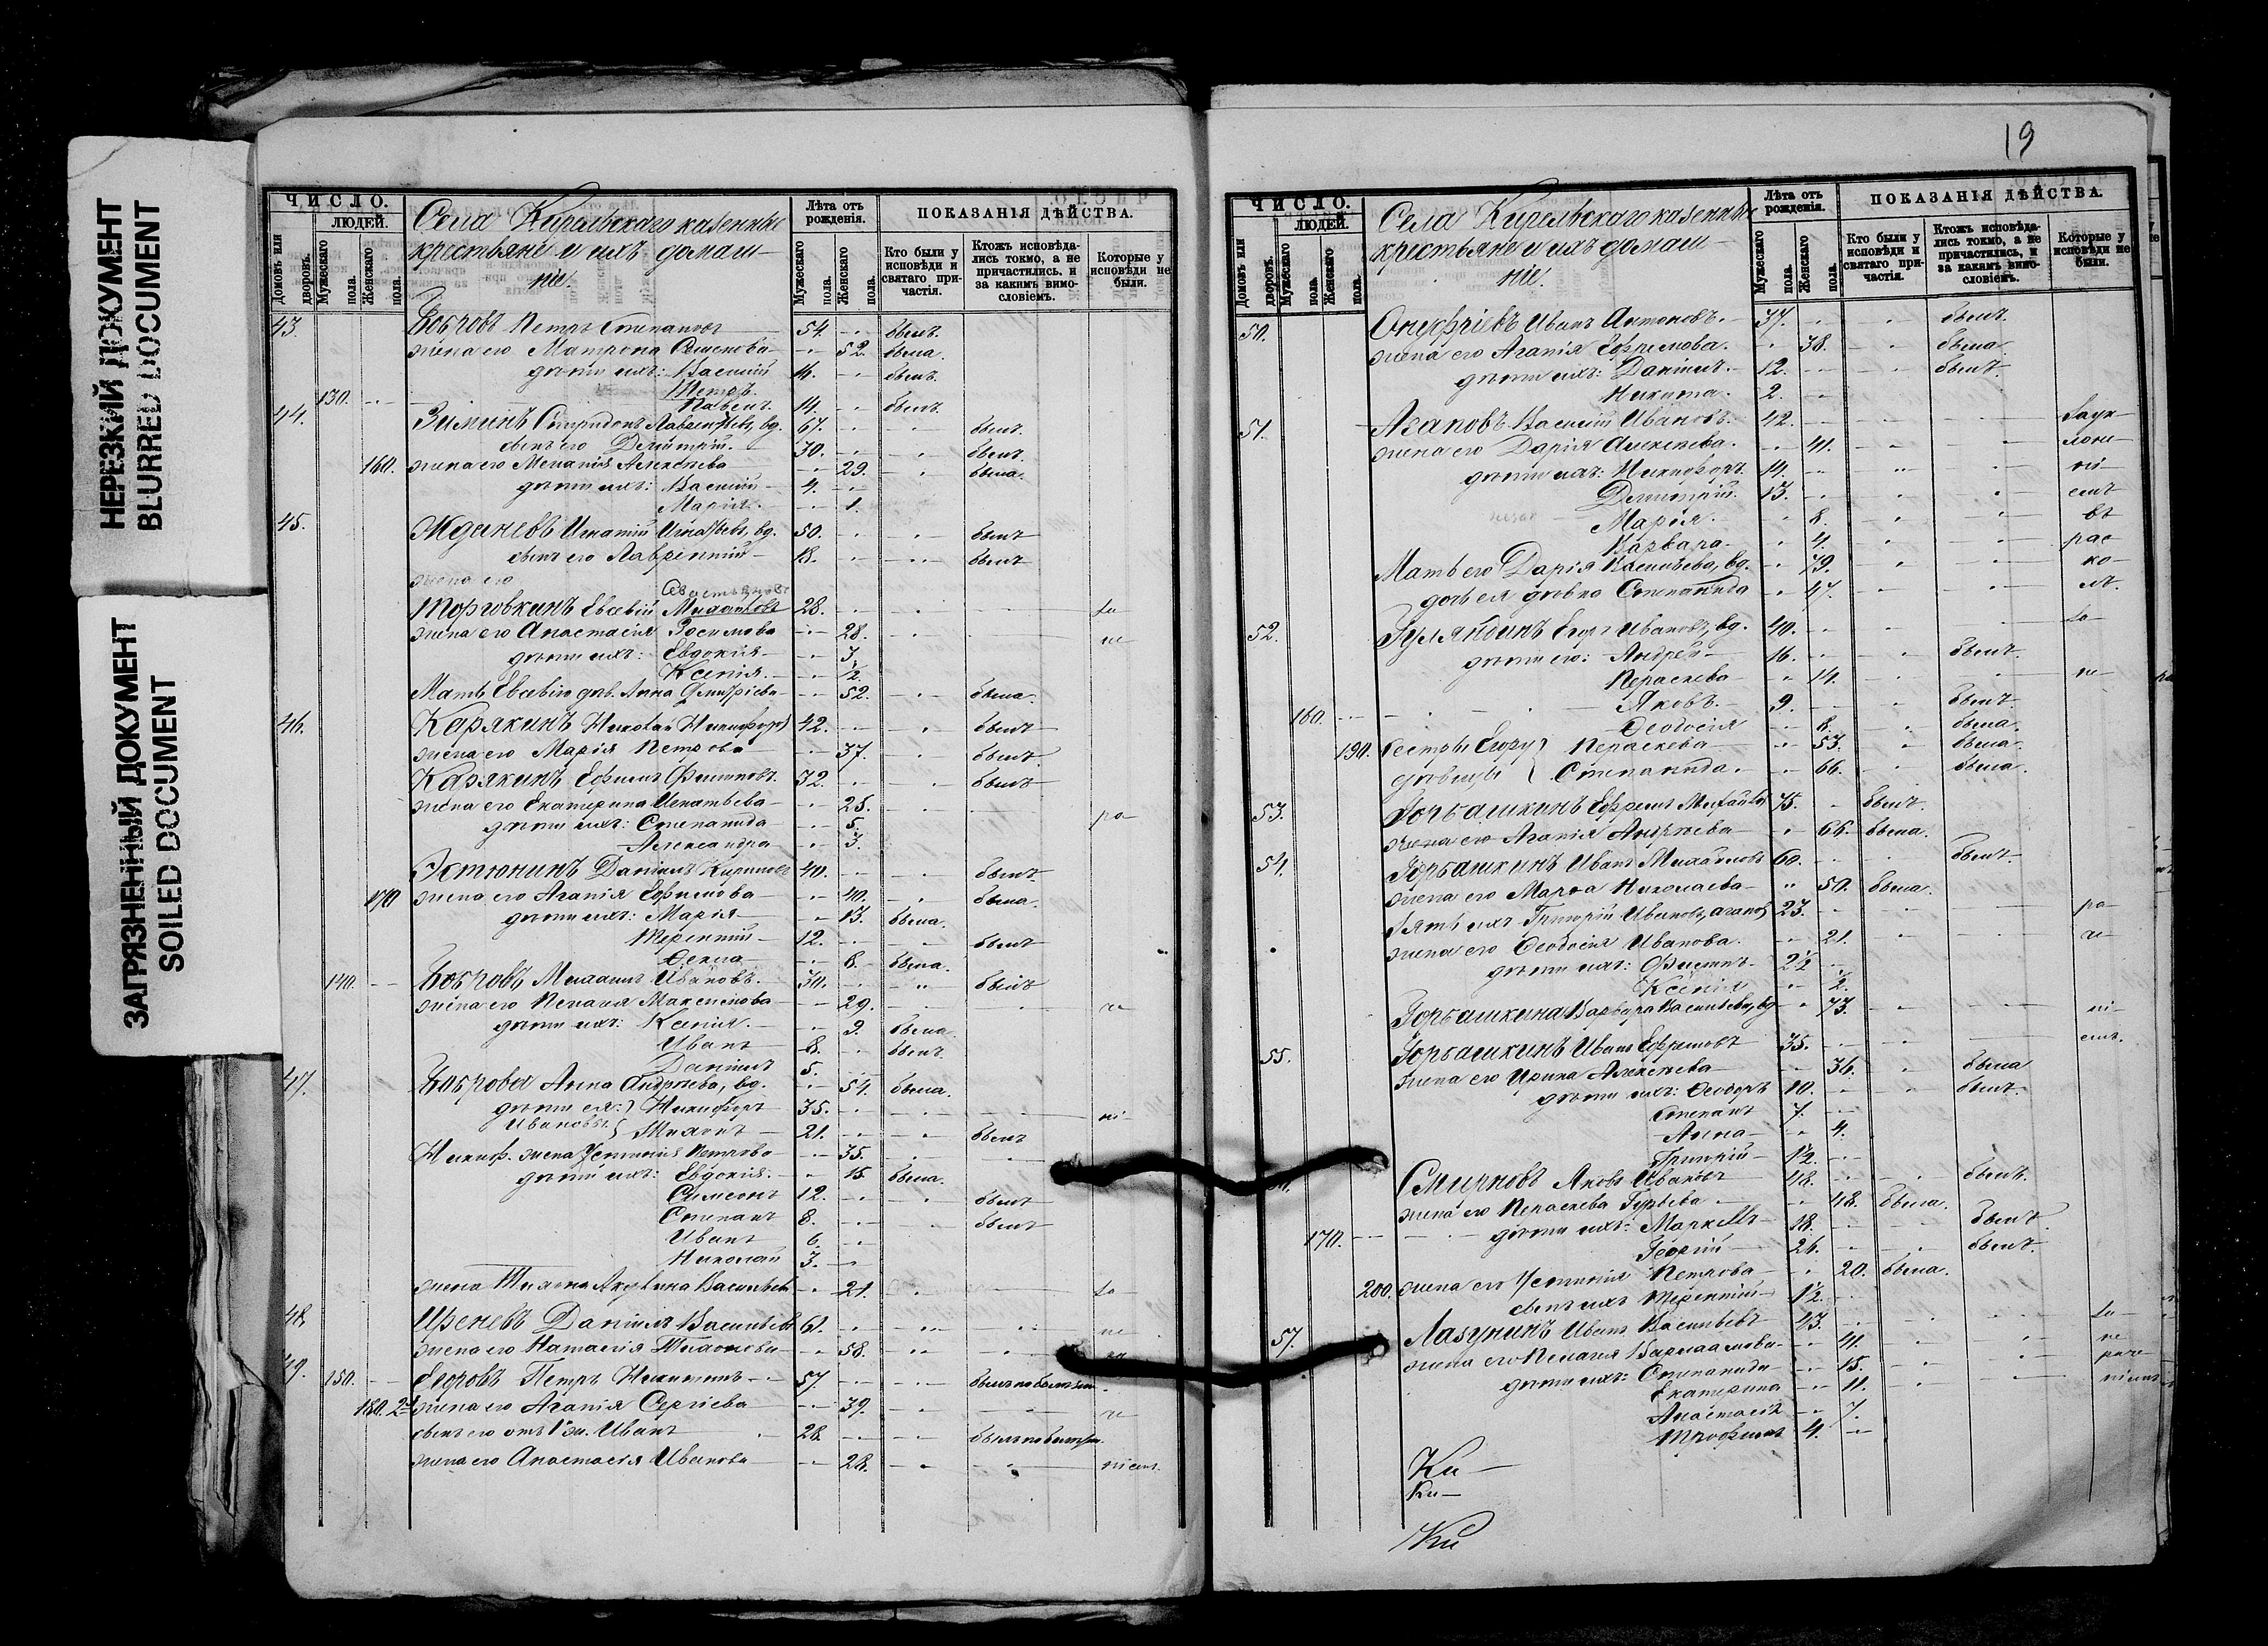 НЕРЕЗКИЙ ДОКУМЕНТ
BLURRED DOCUMENT
ЗАГРЯЗНЕННЫЙ ДОКУМЕНТ
SOILED DOCUMENT
ЧИСЛО.
ЛЮДЕЙ.
Домовъ или дворовъ.
Мужескаго пола.
Женскаго пола.
Села Кирельскаго казенные
крестьяне и ихъ домаш-
ніе.
Лѣта отъ рожденія.
Мужескаго пола.
Женскаго пола.
ПОКАЗАНІЯ ДѢЙСТВА.
Кто были у исповѣди и святаго при-частія.
Ктожъ исповѣда-лись токмо, а не причастились, и за какимъ вино-словіемъ.
Которые у исповѣди не были.
43. Бобровъ Петръ Степановъ 54. былъ.
жена его Матрона Семенова 52. была.
дѣти ихъ: Василій 16. былъ.
Петръ.
130. Павелъ 14. былъ.
44. Зиминъ Спиридонъ Лаврентьевъ, вд. 67. былъ.
сынъ его Димитрій. 30. былъ.
160. жена его Меланія Алексѣева 29. была.
дѣти ихъ: Василій 4.
Марія. 1.
45. Жданевъ Игнатій Игнатьевъ, вд. 50. былъ
сынъ его Лаврентій 18. былъ
жена его
Торговкинъ Евсевій Михайловъ 28.
жена его Анастасія 28. не
дѣти ихъ: Евдокія 3.
Ксенія. 1/2.
Мать Евсевію Анна 52. была.
46. Карякинъ Николай Никифоровъ 42. былъ
жена его Марія Петрова 37.
Карякинъ Ефимъ Филиповъ. 32. былъ
жена его Екатерина Игнатьева 25. ра
дѣти ихъ: Степанида 5.
Александра 3.
Эстюнинъ Даніилъ Кириловъ 40. былъ.
170 жена его Агапія Ефимова 40. была.
дѣти ихъ: Марія 13. была.
Терентій 12. былъ
Ѳекла 8. была.
140. Бобровъ Михаилъ Ивановъ. 30. былъ
жена его Пелагія Максимова 29. че
дѣти ихъ: Ксенія. 9. была.
Иванъ 8. былъ.
Даніилъ 5.
47. Боброва Анна Андреева, вд. 54. была.
дѣти ея: Никифоръ 35. ні
Ивановы Тихонъ 21. былъ
Никиф. жена Устинія Петрова 35.
дѣти ихъ: Евдокія. 15. была.
Симеонъ 12. былъ
Степанъ 8. былъ
Иванъ 6.
Николай 3.
жена Тихона Акулина Васильева 21. за
48. Иреневъ Даніилъ Васильевъ 61. не
жена его Наталія Тихонова 58. ра
49. 150. Егоровъ Петръ Никитинъ 57.
180. 2я жена его Агапія Сергіева 39. че
сынъ его отъ 1й ж. Иванъ 28.
жена его Анастасія Иванова 28. ніемъ.
19
ЧИСЛО.
ЛЮДЕЙ.
Домовъ или дворовъ.
Мужескаго пола.
Женскаго пола.
Села Кирельскаго казенные
крестьяне и ихъ домаш-
ніе.
Лѣта отъ рожденія.
Мужескаго пола.
Женскаго пола.
ПОКАЗАНІЯ ДѢЙСТВА.
Кто были у исповѣди и святаго при-частія.
Ктожъ исповѣда-лись токмо, а не причастились, и за какимъ вино-словіемъ.
Которые у исповѣди не были.
50. Онуфріевъ Иванъ Антоновъ. 37. былъ.
жена его Агапія Ефремова. 38. была.
дѣти ихъ: Даніилъ. 12. былъ.
Никита. 2.
51. Агаповъ Василій Ивановъ. 42. за ук
жена его Дарія Алексѣева. 41. лоне
дѣти ихъ: Никифоръ. 14. ні
Димитрій. 13. емъ
Марія. 8. въ
Варвара. 4. рас
Мать его Дарія Васильева, вд. 79. ко
дочь ея дѣвка Степанида 47. лъ.
52. Гуляндинъ Егоръ Ивановъ, вд. 40. за
дѣти его: Андрей 16. былъ.
Пераскева 14. не
160. Яковъ. 9. былъ.
Ѳеодосія 8. была.
190. сестры Егору Пераскева 53. была.
дѣвицы Степанида. 66. была.
53. Горбашкинъ Ефремъ Михайловъ 75. былъ.
жена его Агапія Андреева 66. была.
54. Горбашкинъ Иванъ Михайловъ 60. былъ.
жена его Марѳа Николаева 50. была.
Зять ихъ Григорій Ивановъ, Агаповъ 23. ра
жена его Ѳеодосія Иванова. 21. че
дѣти ихъ: 2 1/2
Ксенія 1/2.
Горбашкина Варвара Васильева, вд 73. ні
55. Горбашкинъ Иванъ Ефремовъ 35. емъ.
жена его Ирина Алексѣева 36. была
дѣти ихъ: Ѳеодоръ 10. былъ.
Степанъ 7.
Анна 4.
Григорій 1/2.
Смирновъ Яковъ Ивановъ 48. былъ.
жена его Пераскева Гурьева 48. была.
170. дѣти ихъ: Маркеллъ 18. былъ.
Георгій 26. былъ.
200. жена его Устинія Петрова 20. была.
сынъ ихъ Терентій 1/2.
57. Лазунинъ Иванъ Васильевъ 43. за
жена его Пелагія Варлаамова 41. не
дѣти ихъ: Степанида 15. раче
Екатерина 11. ніемъ
Анастасія 7.
Трофимъ 4.
Ки
Ки
Ки